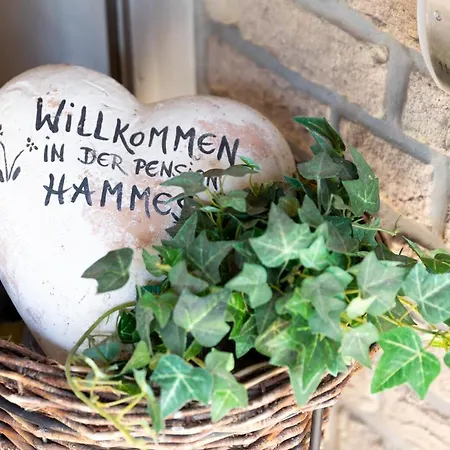 WILLKOMMEN
IN DER PENSION
HAMMES